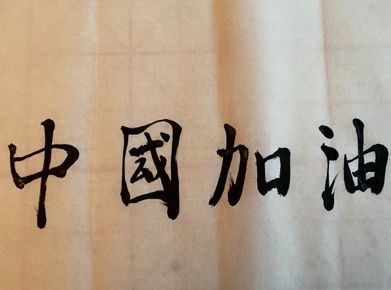 中國加油